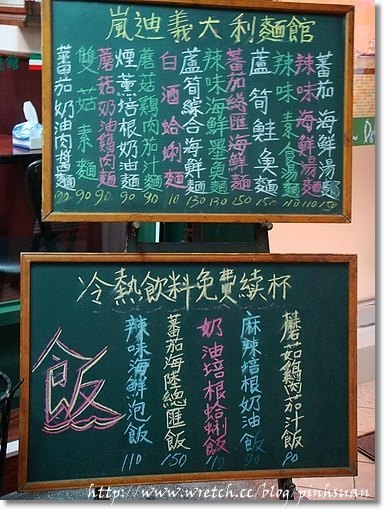 嵐迪義大利麵館
蕃茄海鮮湯麵 150
辣味海鮮湯麵 110
辣味素食湯麵 110
蘆筍鮭魚麵 150
蕃茄總匯海鮮麵 150
辣味海鮮墨魚麵 130
蘆筍綜合海鮮麵 130
白酒蛤蜊麵 110
蘑菇雞肉茄汁麵 90
煙薰培根奶油麵 90
蘑菇奶油雞肉麵 90
雙菇素麵 90
蕃茄奶油肉醬麵
冷熱飲料免費续杯
蘑菇雞肉茄汁飯 90
麻辣培根奶油飯 90
奶油培根蛤蜊飯 110
蕃茄海陸總匯飯 150
辣味海鮮泡飯 110
飯
http://www.wretch.cc/blog/pinhsuan